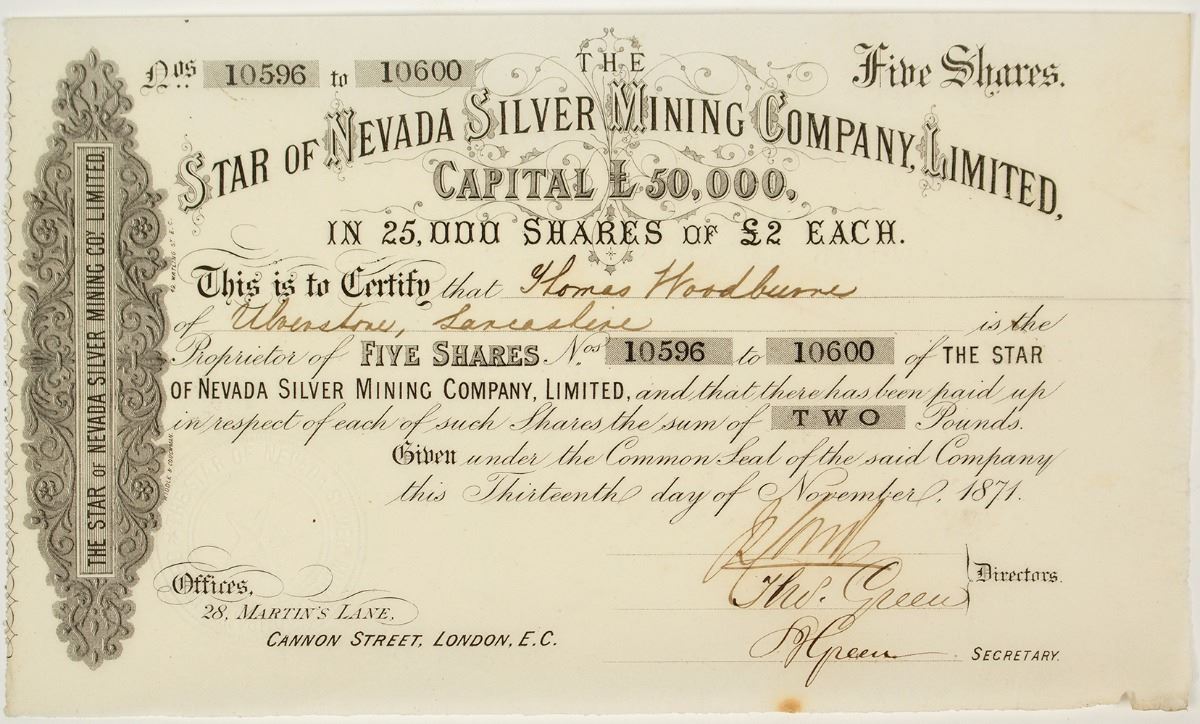 Nos. 10596 to 10600
Five Shares.
THE
STAR OF NEVADA SILVER MINING COMPANY, LIMITED,
CAPITAL £50,000.
IN 25,000 SHARES OF £2 EACH.
This is to Certify that Thomas Woodburne
of Ulverstone, Lancashire is the
Proprietor of FIVE SHARES. Nos. 10596 to 10600 of THE STAR
OF NEVADA SILVER MINING COMPANY, LIMITED, and that there has been paid up
in respect of each of such Shares the sum of TWO Pounds.
Given under the Common Seal of the said Company
this Thirteenth day of November, 1871.
Thos. Green
Directors.
Green
SECRETARY.
Offices,
28, MARTIN'S LANE,
CANNON STREET, LONDON, E.C.
THE STAR OF NEVADA SILVER MINING COY. LIMITED.